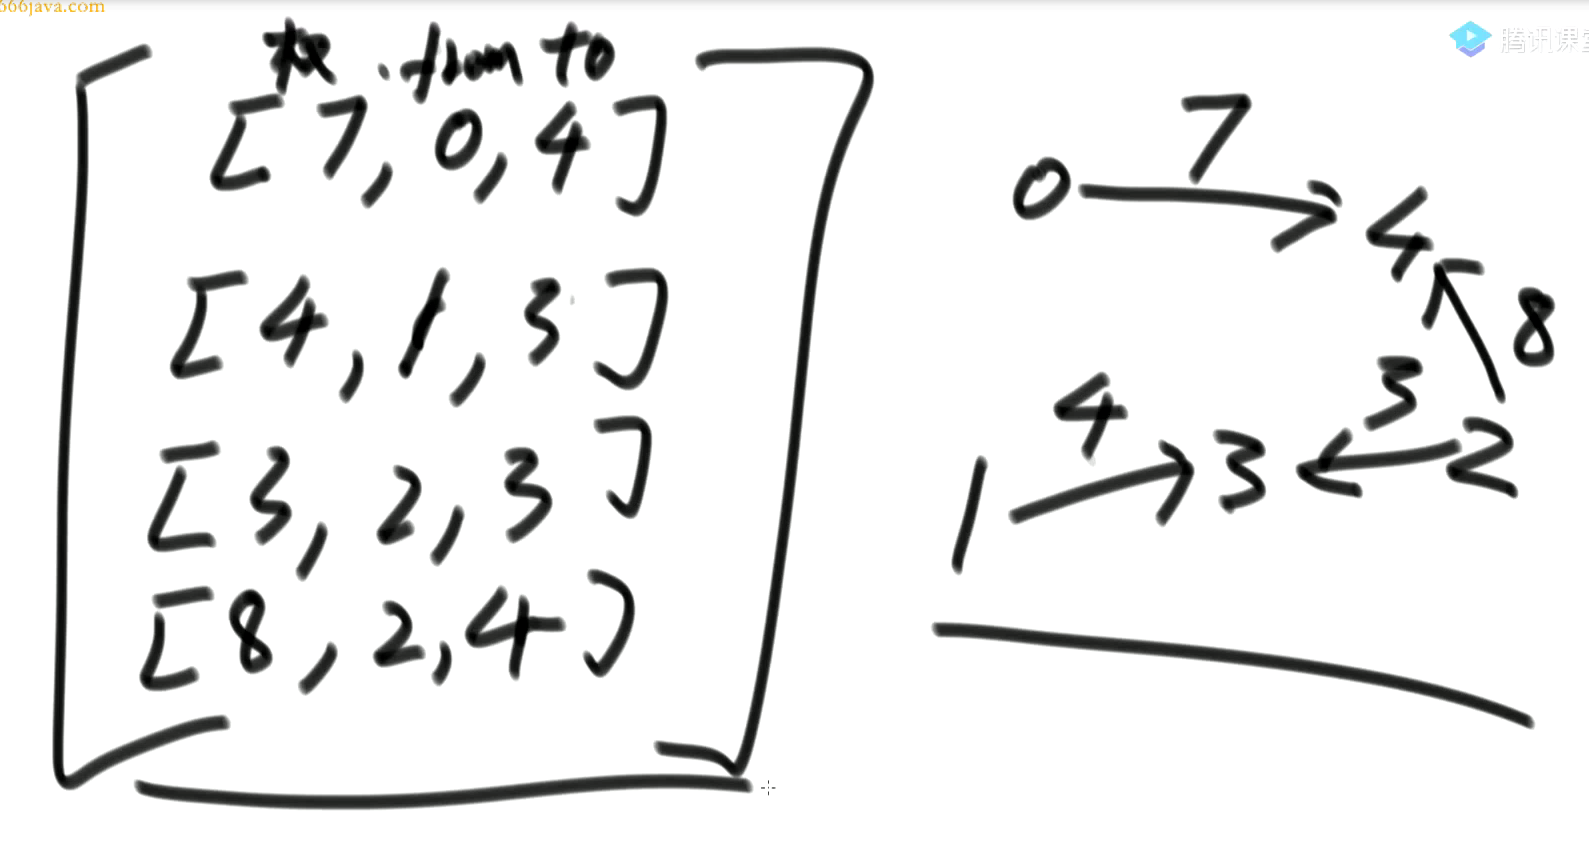 666java.com
腾讯课堂
权 . from to
[7, 0, 4]
[4, 1, 3]
[3, 2, 3]
[8, 2, 4]
7
0 4
8
3
4
1 3 2